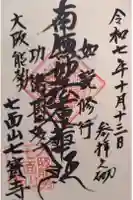 令和七年十月十三日
参拝之砌
如説修行
南無妙法蓮華経
功徳
大阪能勢
七面山七寳寺